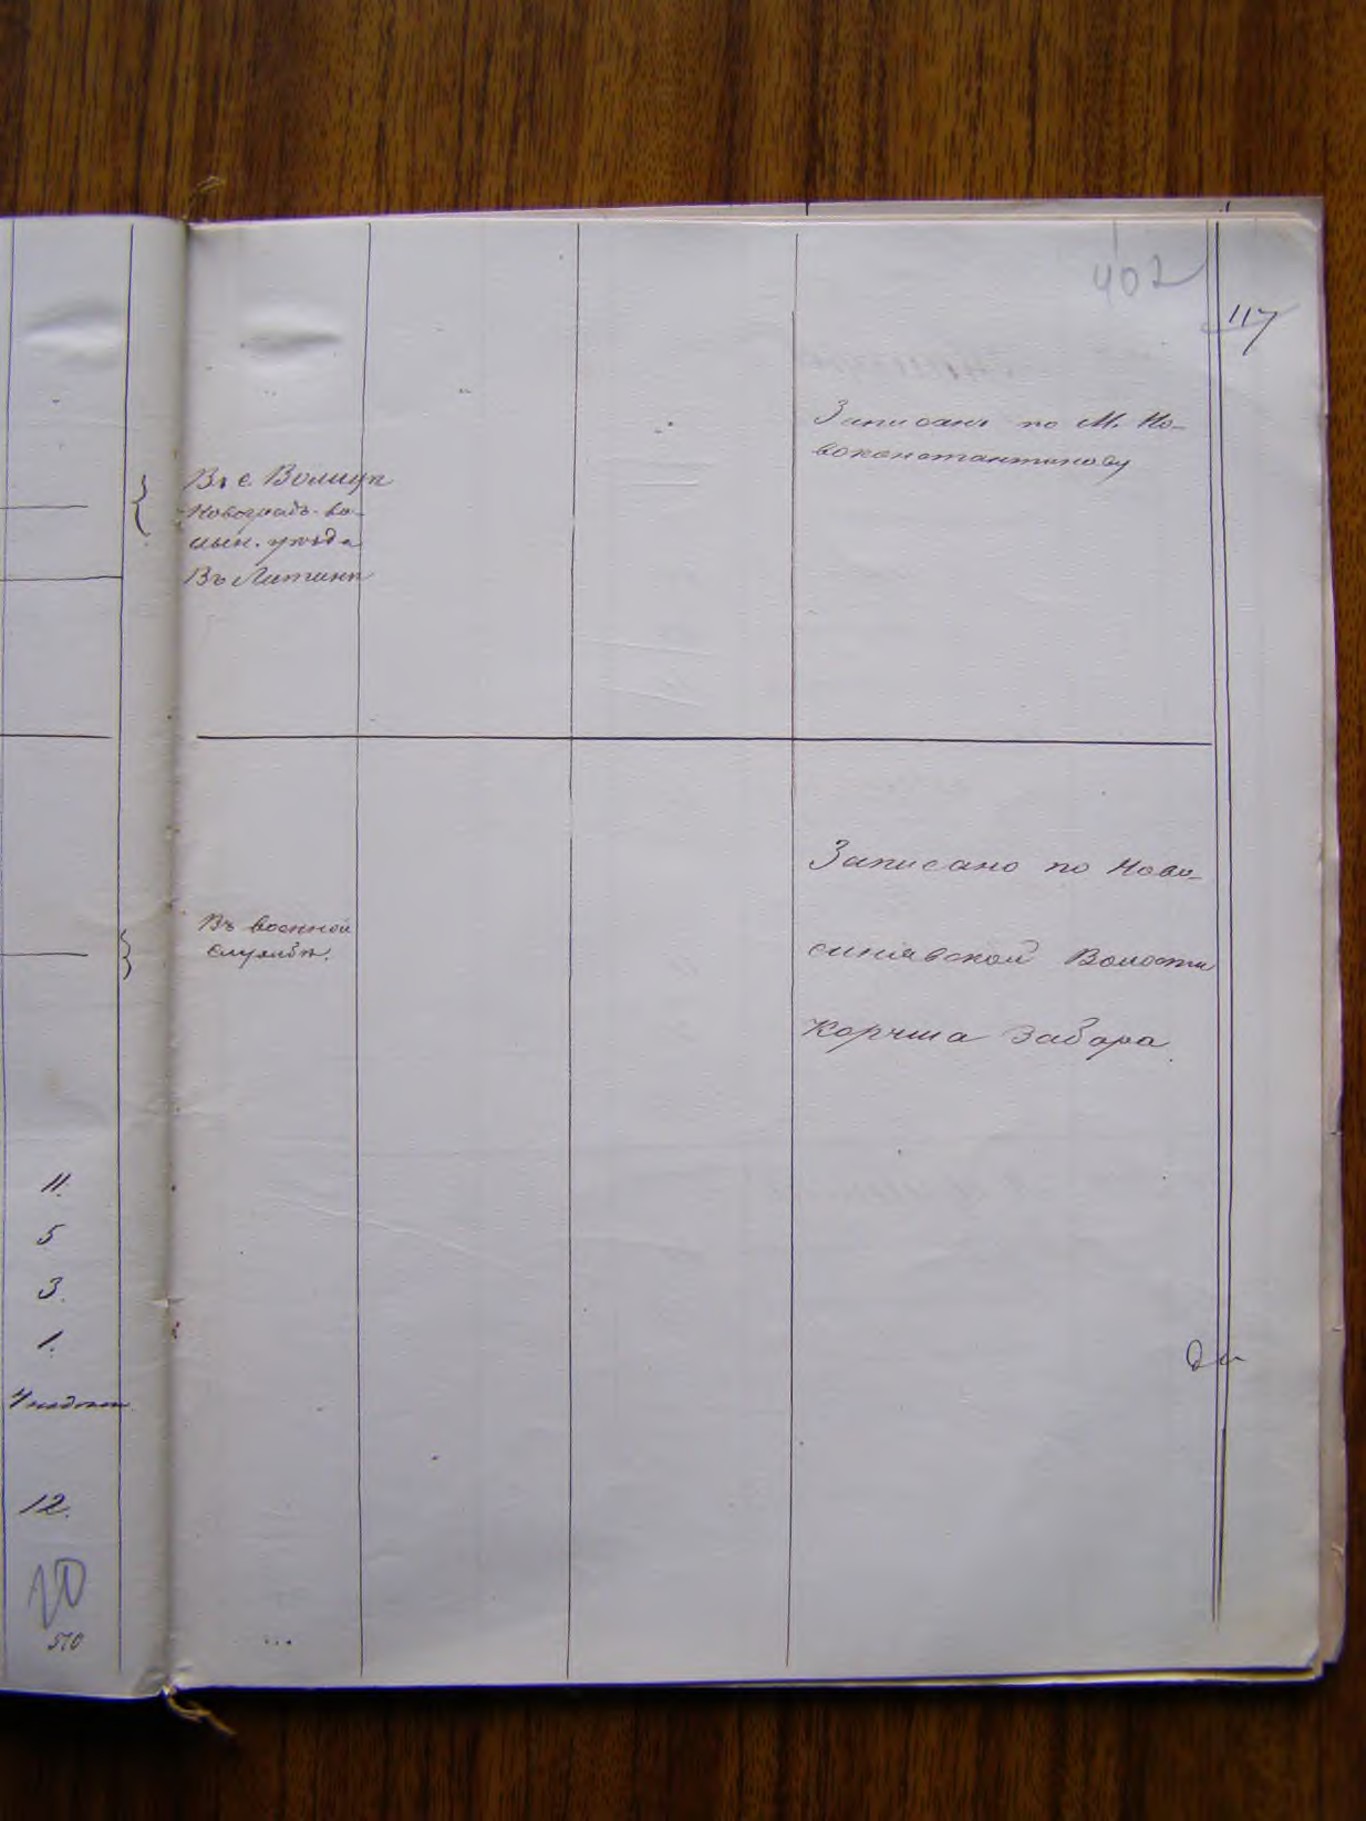 402
117
Записанъ по М. Но-
воконстантинову
Въ с.
Новоградъ-во-
лын. уѣзда
Въ Литинѣ
Записано по Ново-
синявской Волости
Корчма Забара
Въ военной
службѣ.
11.
5
3.
1.
4
12.
20
570